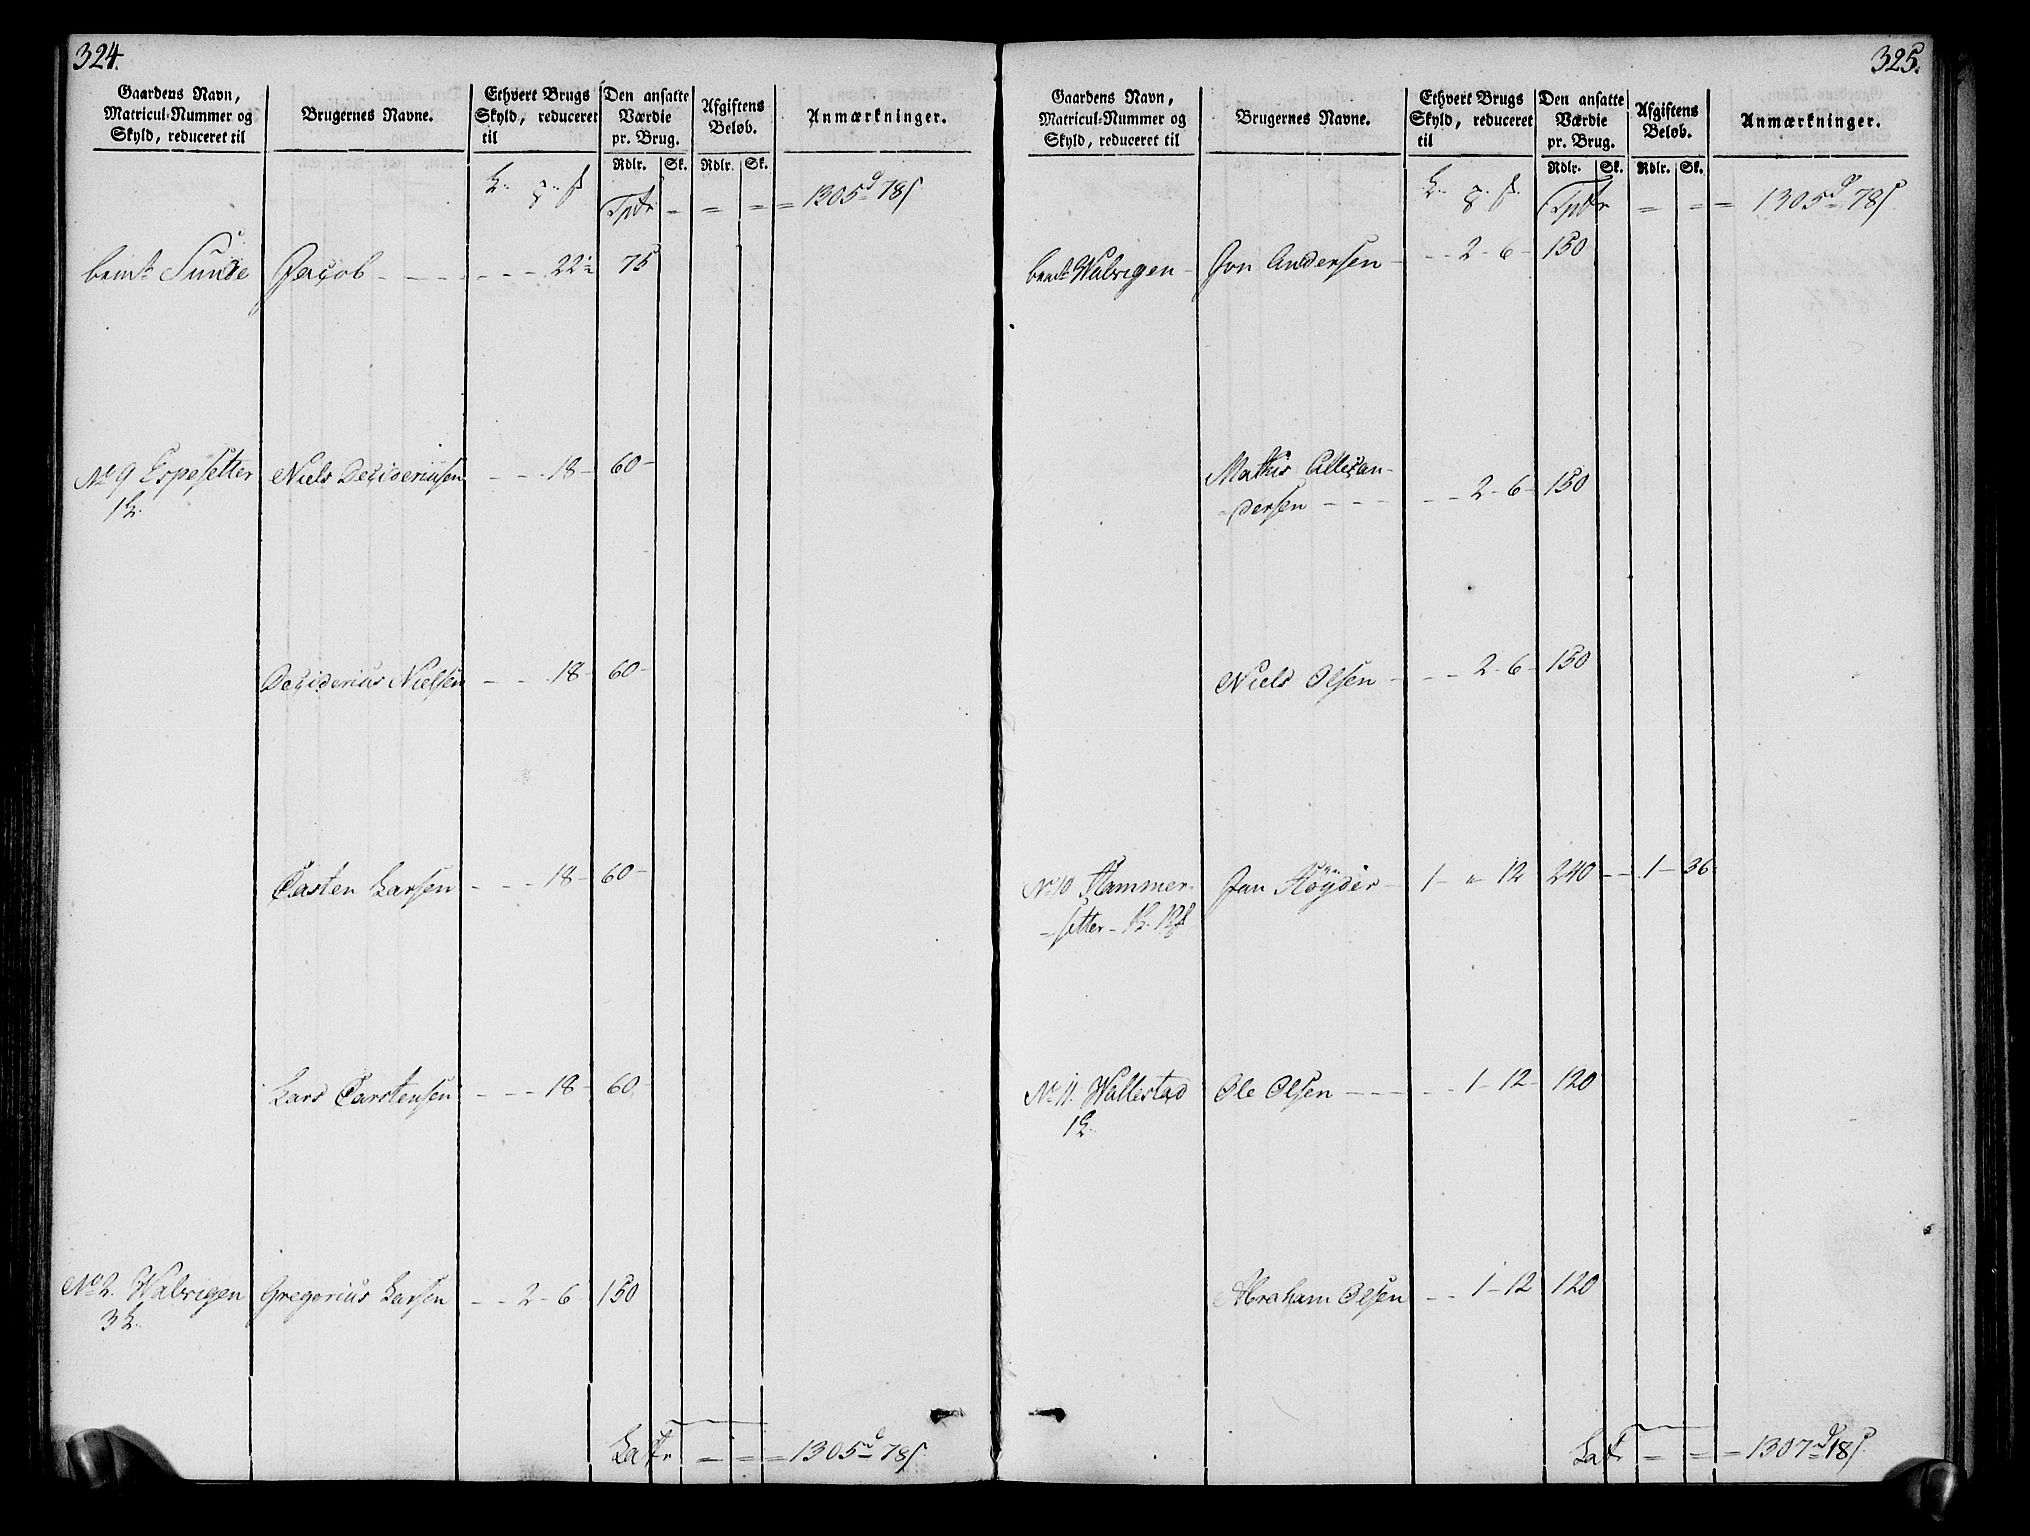 324.
Gaardens Navn, Matricul-Nummer og Skyld, reduceret til
Brugernes Navne.
Ethvert Brugs Skyld, reduceret til
Den ansatte Værdie pr. Brug.
Afgiftens Beløb.
Anmærkninger.
Rdlr. Sk. Rdlr. Sk.
Tptr = = = = 1305 d 78 s
bemte Sunde Jacob - - - - - - 22½ 75
No 9 Espesetter Niels Desideriussen - - - 18 - 60 -
1 L.
Desiderius Nielsen - - - 18 - 60 -
Casten Larsen - - - 18 - 60 -
Lars Carstensen - - - 18 - 60
No 2. Walvrigen Gregorius Larsen - - 2 - 6 - 150
3 L.
Latr = = = 1305 d 78 s
325.
Gaardens Navn, Matricul-Nummer og Skyld, reduceret til
Brugernes Navne.
Ethvert Brugs Skyld, reduceret til
Den ansatte Værdie pr. Brug.
Afgiftens Beløb.
Anmærkninger.
Rdlr. Sk. Rdlr. Sk.
Tptr = = = 1305 d 78 s
bemte Walvrigen - Jon Andersen - - - 2 - 6 - 150
Mathis Allexan-
= dersen - - - - - 2 - 6 - 150
Niels Olsen - - - 2 - 6 - 150
No 10 Hammer- Jan Höyder - 1 - " 12 240 - - 1 - 36
= setter - 1 L. 12
No 11. Wallestad Ole Olsen - - - - - 1 - 12 - 120
1 L.
Abraham Olsen - - 1 - 12 120
Latr = = = 1307 d 18 s